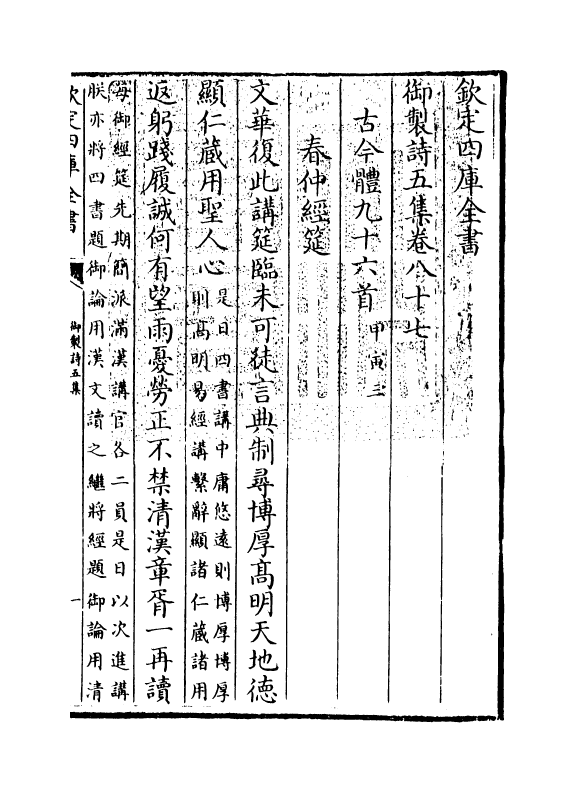 欽定四庫全書
御製詩五集卷八十七
古今體九十六首甲寅三
春仲經筵
文華復此講筵臨未可徒言典制尋博厚髙明天地德
顯仁藏用聖人心是日四書講中庸悠遠則博厚博厚
則髙明易經講繫辭顯諸仁藏諸用
返躬踐履誠何有望雨憂勞正不禁清漢章胥一再讀
每御經筵先期簡派滿漢講官各二員是日以次進講
朕亦將四書題御論用漢文讀之繼將經題御論用清
欽定四庫全書
御製詩五集
一